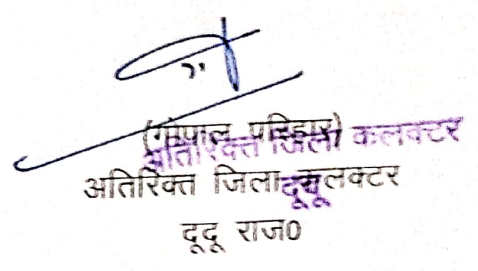 (गोपाल परिहार)
अतिरिक्त जिला कलक्टर
दूदू
अतिरिक्त जिला कलक्टर
दूदू राज0